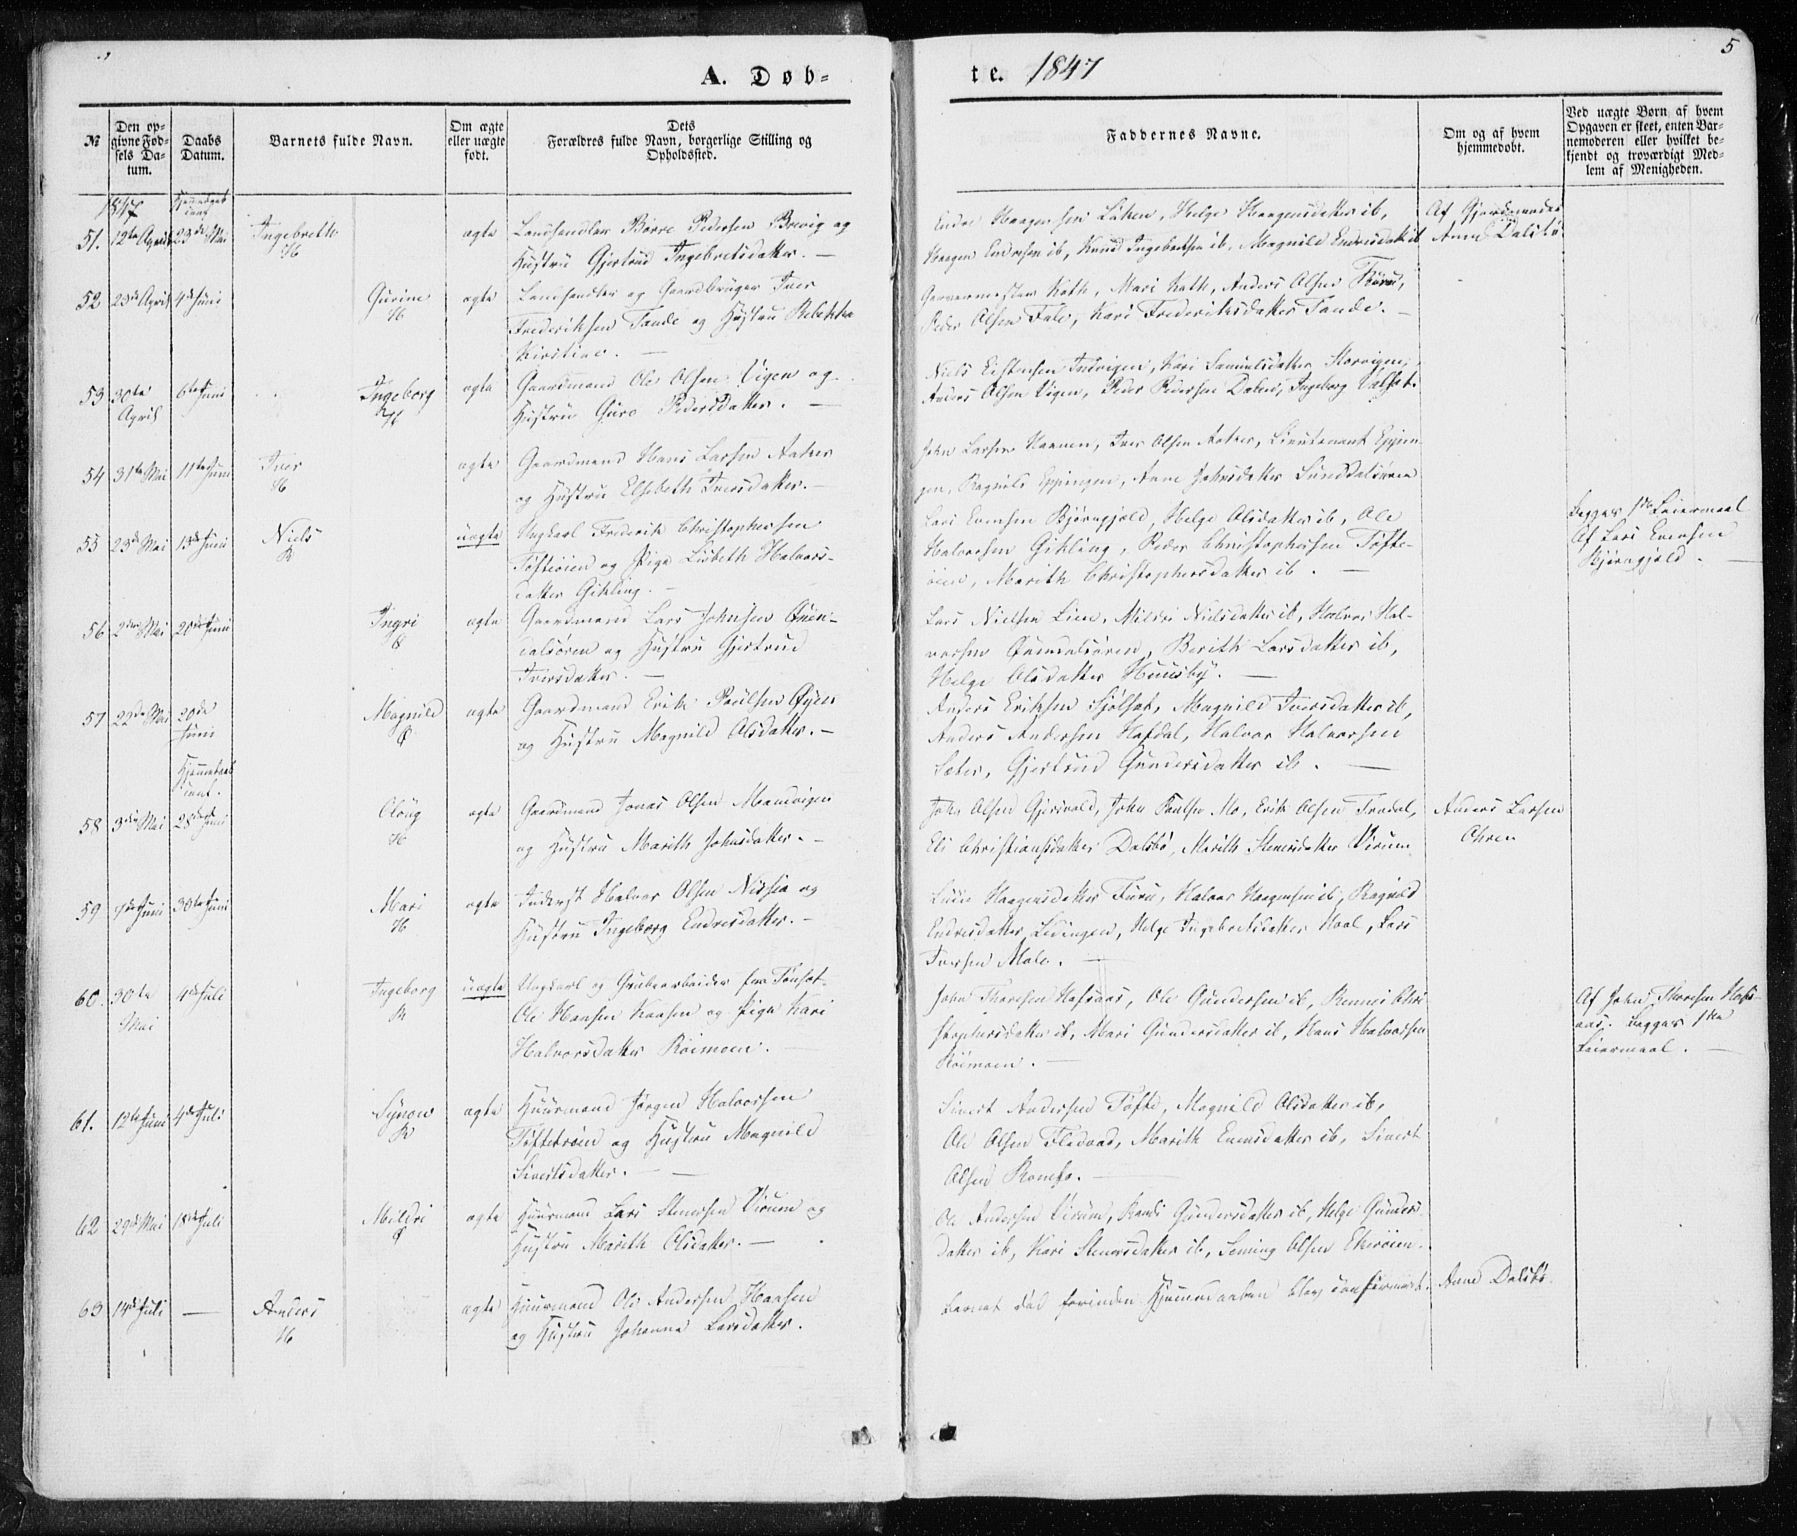 A. Døb-
te. 1847
5
№
Den op-
givne Fød-
sels Da-
tum.
Daabs
Datum.
Barnets fulde Navn.
Om ægte
eller uægte
født.
Dets
Forældres fulde Navn, borgerlige Stilling og
Opholdssted.
Faddernes Navne.
Om og af hvem
hjemmedøbt.
Ved uægte Børn af hvem
Opgaven er skeet, enten Bar-
nemoderen eller hvilket be-
kjendt og troværdigt Med-
lem af Menigheden.
1847
51. 12te April 23de Mai Ingebreth H ægte Landhandler Børre Pedersen Brevig og
Hustru Gjertrud Ingebretsdatter. —
Endre Haagensen Liahen, Helge Haagensdatter ib,
Haagen Endresen ib, Knud Ingebretsen ib, Magnild Endresdatter ib
Af Gjordemoder
Anne Dalsbø
52 23de April 4de Juni Gurine H ægte Landhandler og Gaardbruger Iver
Frederiksen Tande og Hustru Rebekka
Kirstine. —
Garvermester Roth, Mari Roth, Anders Olsen Furu,
Peder Olsen Fale, Kari Frederiksdatter Tande. —
53 30te April 6te Juni Ingeborg H ægte Gaardmand Ole Olsen Vigen og
Hustru Guro Pedersdatter. —
Niels Eistensen Indvigen, Kari Samuelsdatter Storvigen,
Anders Olsen Vigen, Peder Pedersen Dalen, Ingeborg Valset.
54 31te Mai 11te Juni Iver H ægte Gaardmand Hans Larsen
og Hustru Elsebeth Iversdatter. —
John Larsen Haanen, Iver Olsen, Lieutenant
Ragnild, Anne Johnsdatter Sunddalsøren
55 23de Mai 13de Juni Niels R uægte Ungkarl Frederik Christophersen
Tøfteøien og Pige Lisbeth Halvors-
datter Gikling. —
Lars Evensen Bjørnhjeld, Helge Olsdatter ib, Ole
Halvorsen Gikling, Peder Christophersen Tøfte-
øien, Marith Christophersdatter ib. —
Begges 1ste Leiermaal
Af Lars Evensen
Bjørnhjeld. —
56 2den Mai 20de Juni Ingri Ø ægte Gaardmand Lars Johnsen Øxen-
dalsøren og Hustru Gjertrud
Iversdatter. —
Lars Nielsen Lien, Mildri Nielsdatter ib, Halvor Hal-
vorsen Øxendalsøren, Berith Larsdatter ib,
Helge Olsdatter Huusby. —
57 22de Mai 20de Juni Magnild Ø ægte Gaardmand Erik Poulsen Øyen
og Hustru Magnild Olsdatter. —
Anders Eriksen Hjølset, Magnild Iversdatter ib,
Anders Andersen Hafdal, Halvor Halvorsen
Sæter, Gjertrud Gundersdatter ib. —
58 3die Mai 28de Juni Oloug H ægte Gaardmand Jonas Olsen Meiavigen
og Hustru Marith Johnsdatter. —
John Olsen Gjersvold, John Poulsen Mo, Erik Olsen Tredal,
Eli Christiansdatter Dalsbø, Marith Stenersdatter Virum
Anders Larsen
Ohren
59 1ste Juni 30te Juni Mari H ægte Inderst Halvor Olsen Nissia og
Hustru Ingeborg Endresdatter. —
Lusie Haagensdatter Furu, Halvor Haagensen ib, Ragnild
Endresdatter Ledingen, Helge Ingebretsdatter Hoel, Lars
Iversen Mele. —
60. 30te Mai 4de Juli Ingeborg R uægte Ungkarl og Grubearbeider fra Tønset
Ole Hansen Kaasen og Pige Kari
Halvorsdatter Röimoen. —
John Thoresen Hafsaas, Ole Gundersen ib, Rennei Chri-
stophersdatter ib, Mari Gundersdatter ib, Hans Halvorsen
Röimoen. —
Af John Thoresen Hafs-
aas. Begges 1ste
Leiermaal. —
61. 12te Juni 4de Juli Synove R ægte Huusmand Jørgen Halvorsen
Tøftetrøen og Hustru Magnild
Sivertsdatter. —
Sivert Andersen Tøfte, Magnild Olsdatter ib,
Ole Olsen Fladvad, Marith Evensdatter ib, Sivert
Olsen Romfo. —
62 29de Mai 18de Juli Mildri Ø ægte Huusmand Lars Stenersen Virum og
Hustru Marith Olsdatter. —
Ole Andersen Virum, Randi Gundersdatter ib, Helge Gunders-
datter ib, Kari Stenersdatter ib, Seming Olsen Ekrøien.
63 14de Juli — Anders H ægte Huusmand Ole Andersen Hansen
og Hustru Johanna Larsdatter.
Barnet død forinden Hjemmedaaben blev confirmert.
Anne Dalsbø.